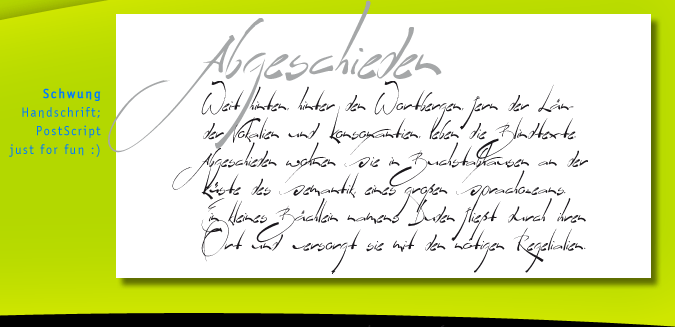 Schwung
Handschrift;
PostScript
just for fun :)
Abgeschieden
Weit hinten, hinter den Wortbergen, fern der Län-
der Vokalien und Konsonantien, leben die Blindtexte.
Abgeschieden wohnen Sie in Buchstabhausen an der
Küste des Semantik, eines großen Sprachozeans.
Ein kleines Bächlein namens Duden fließt durch ihren
Ort und versorgt sie mit den nötigen Regelialien.